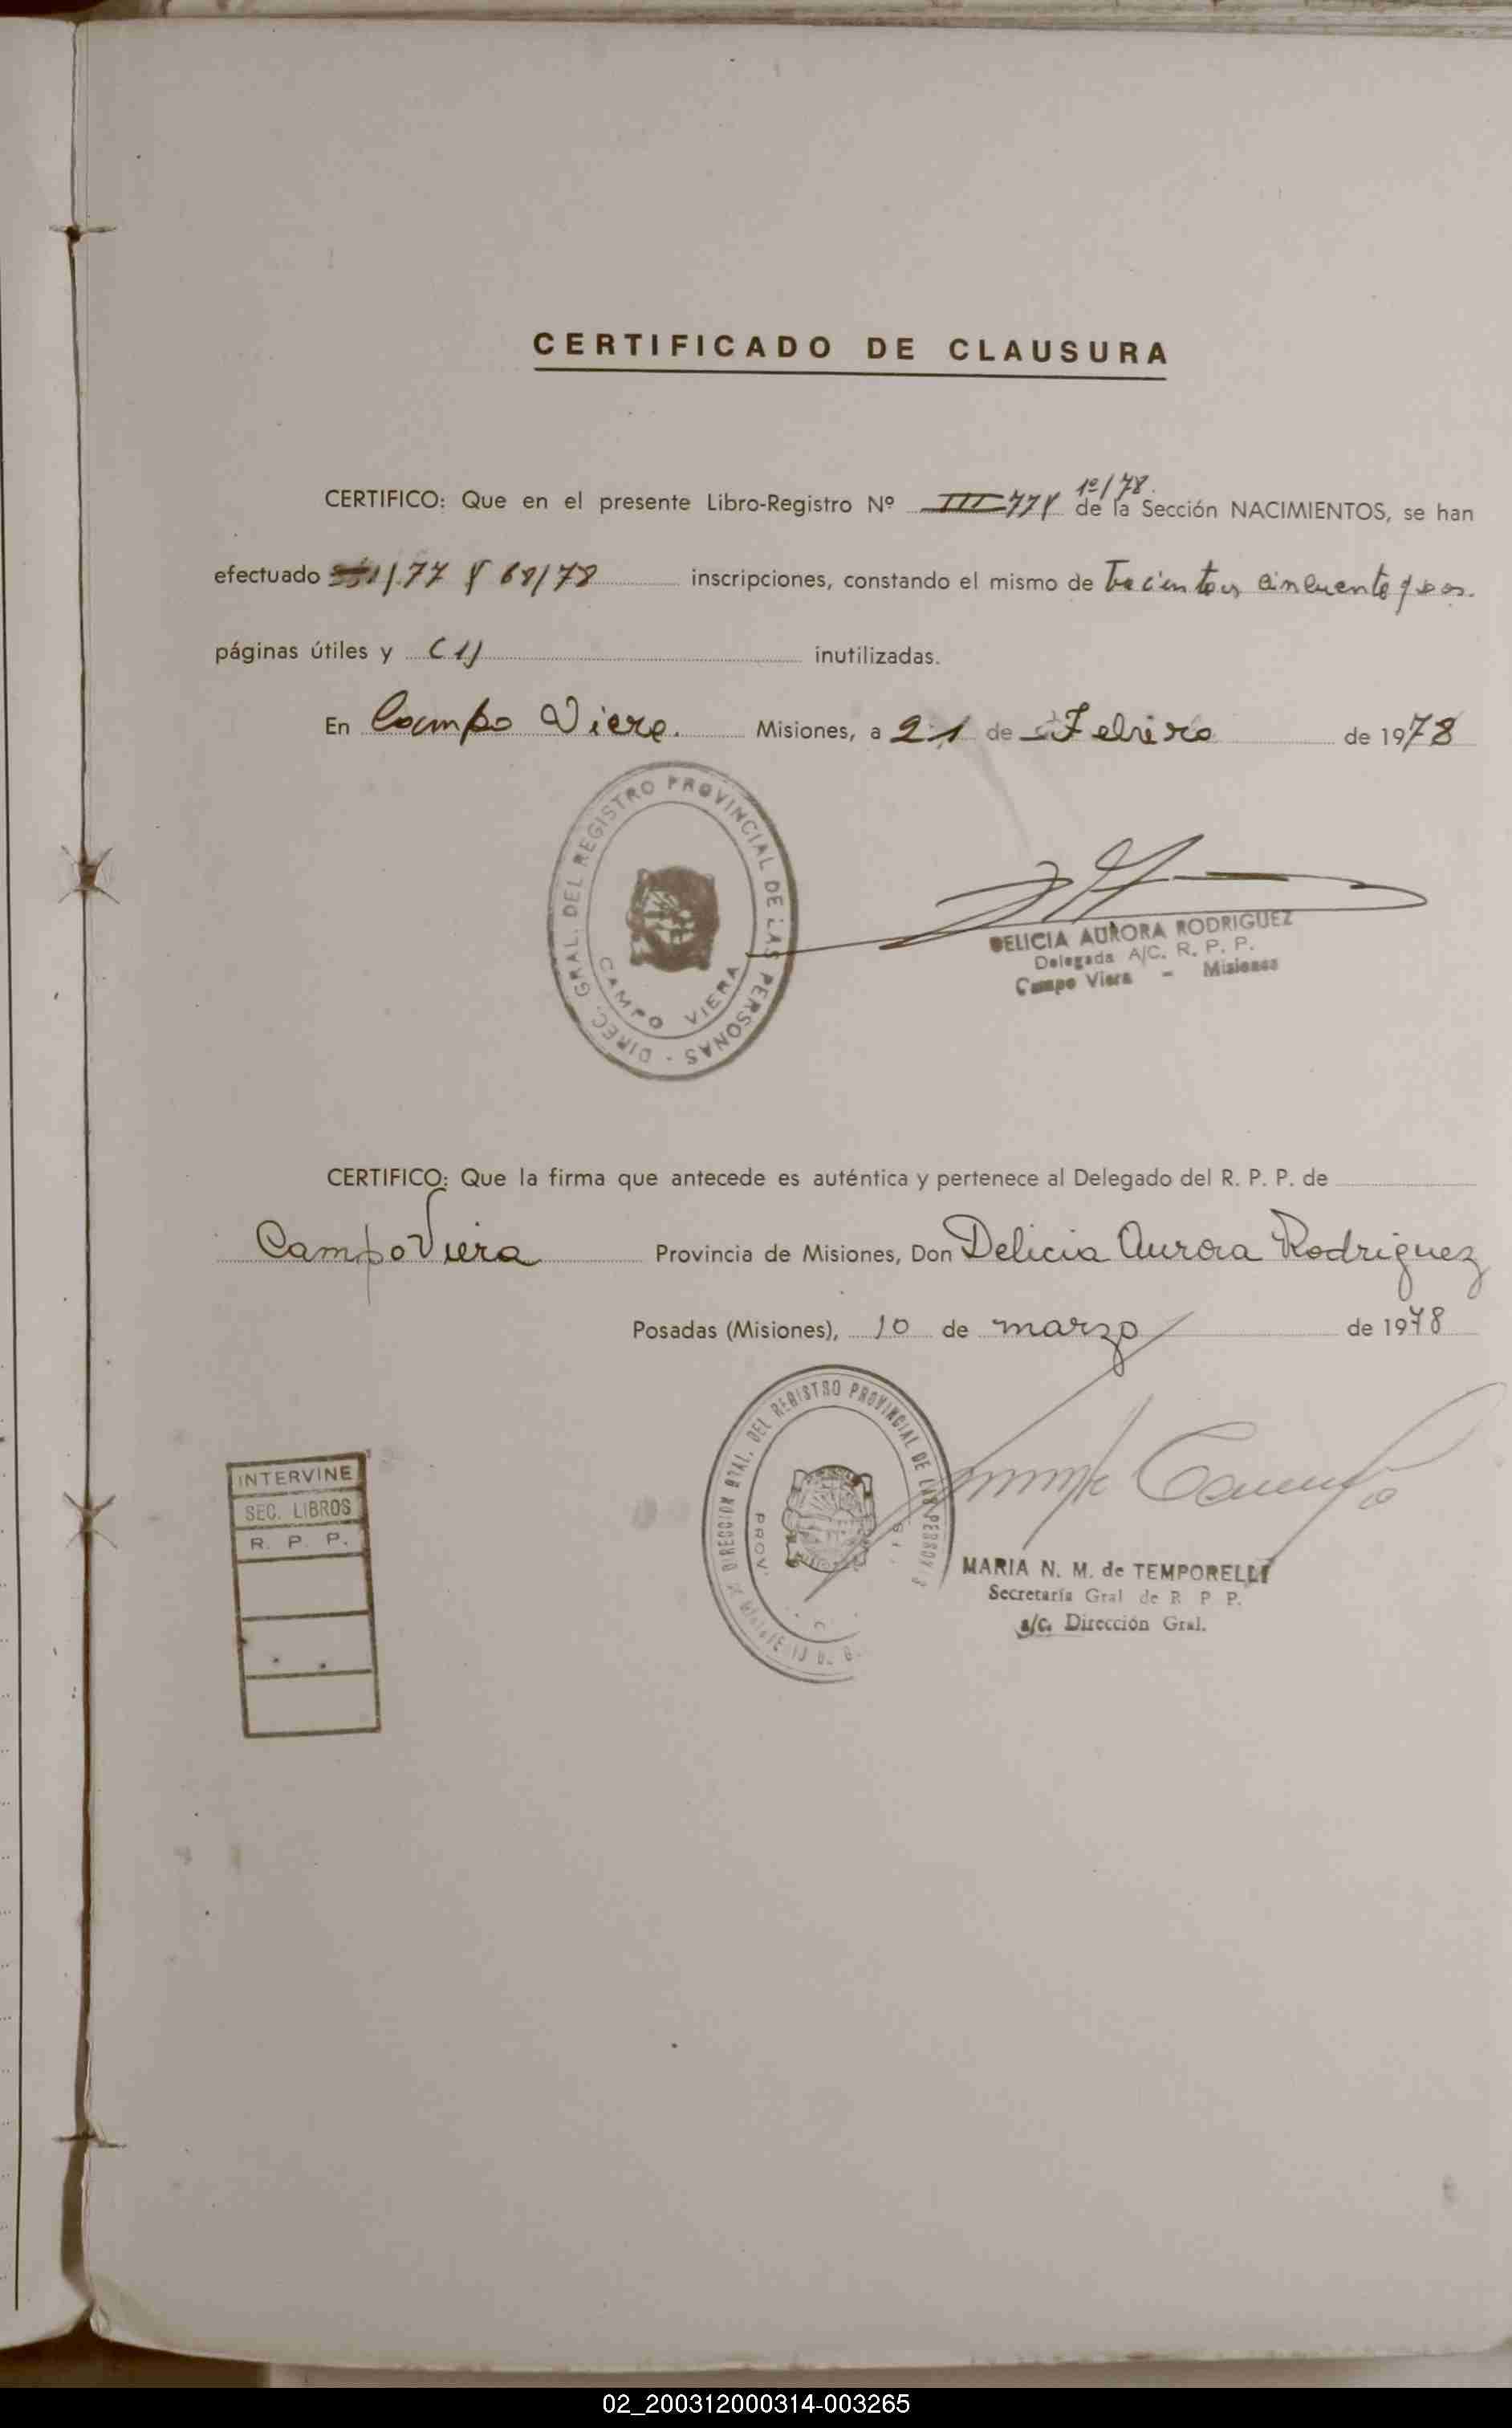 CERTIFICADO DE CLAUSURA
1º/78.
CERTIFICO: Que en el presente Libro-Registro Nº III-77 y de la Sección NACIMIENTOS, se han
efectuado /77 y 68/78 inscripciones, constando el mismo de
páginas útiles y (1) inutilizadas.
En Campo Viera. Misiones, a 21 de Febrero de 1978
DIREC. GRAL. DEL REGISTRO PROVINCIAL DE LAS PERSONAS -
CAMPO VIERA
DELICIA AURORA RODRIGUEZ
Delegada A/C. R. P. P.
Campo Viera - Misiones
CERTIFICO: Que la firma que antecede es auténtica y pertenece al Delegado del R. P. P. de
Campo Viera Provincia de Misiones, Don Delicia Aurora Rodriguez
Posadas (Misiones), 10 de marzo de 1978
DIRECCION GRAL. DEL REGISTRO PROVINCIAL DE LAS PERSONAS
PROV.
INTERVINE
SEC. LIBROS
R. P. P.
MARIA N. M. de TEMPORELLI
Secretaría Gral de R P P.
a/c. Dirección Gral.
02_200312000314-003265